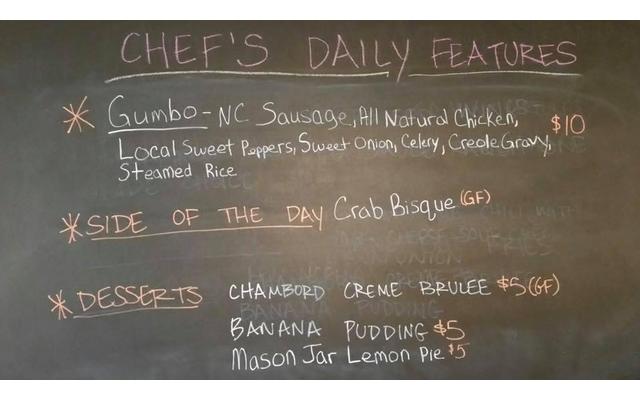 CHEF'S DAILY FEATURES
* Gumbo - NC Sausage, All Natural Chicken, $10
Local Sweet Peppers, Sweet Onion, Celery, Creole Gravy,
Steamed Rice
* SIDE OF THE DAY Crab Bisque (GF)
* DESSERTS CHAMBORD CREME BRULEE $5 (GF)
BANANA PUDDING $5
Mason Jar Lemon Pie $5